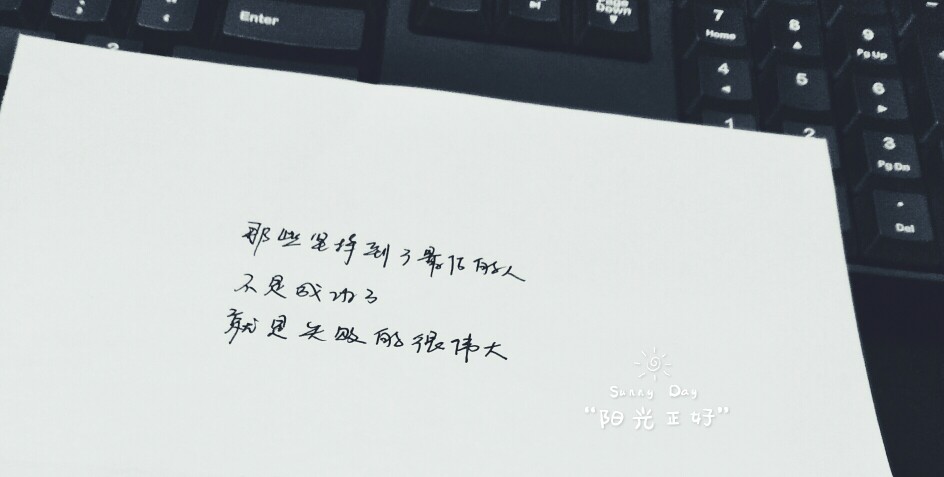 Enter
Page
Down
7
Home
8
9
Pg Up
4
5
6
1
2
3
Pg Dn
Del
那些坚持到了最后的人
不是成功了
就是失败的很伟大
Sunny Day
“阳光正好”